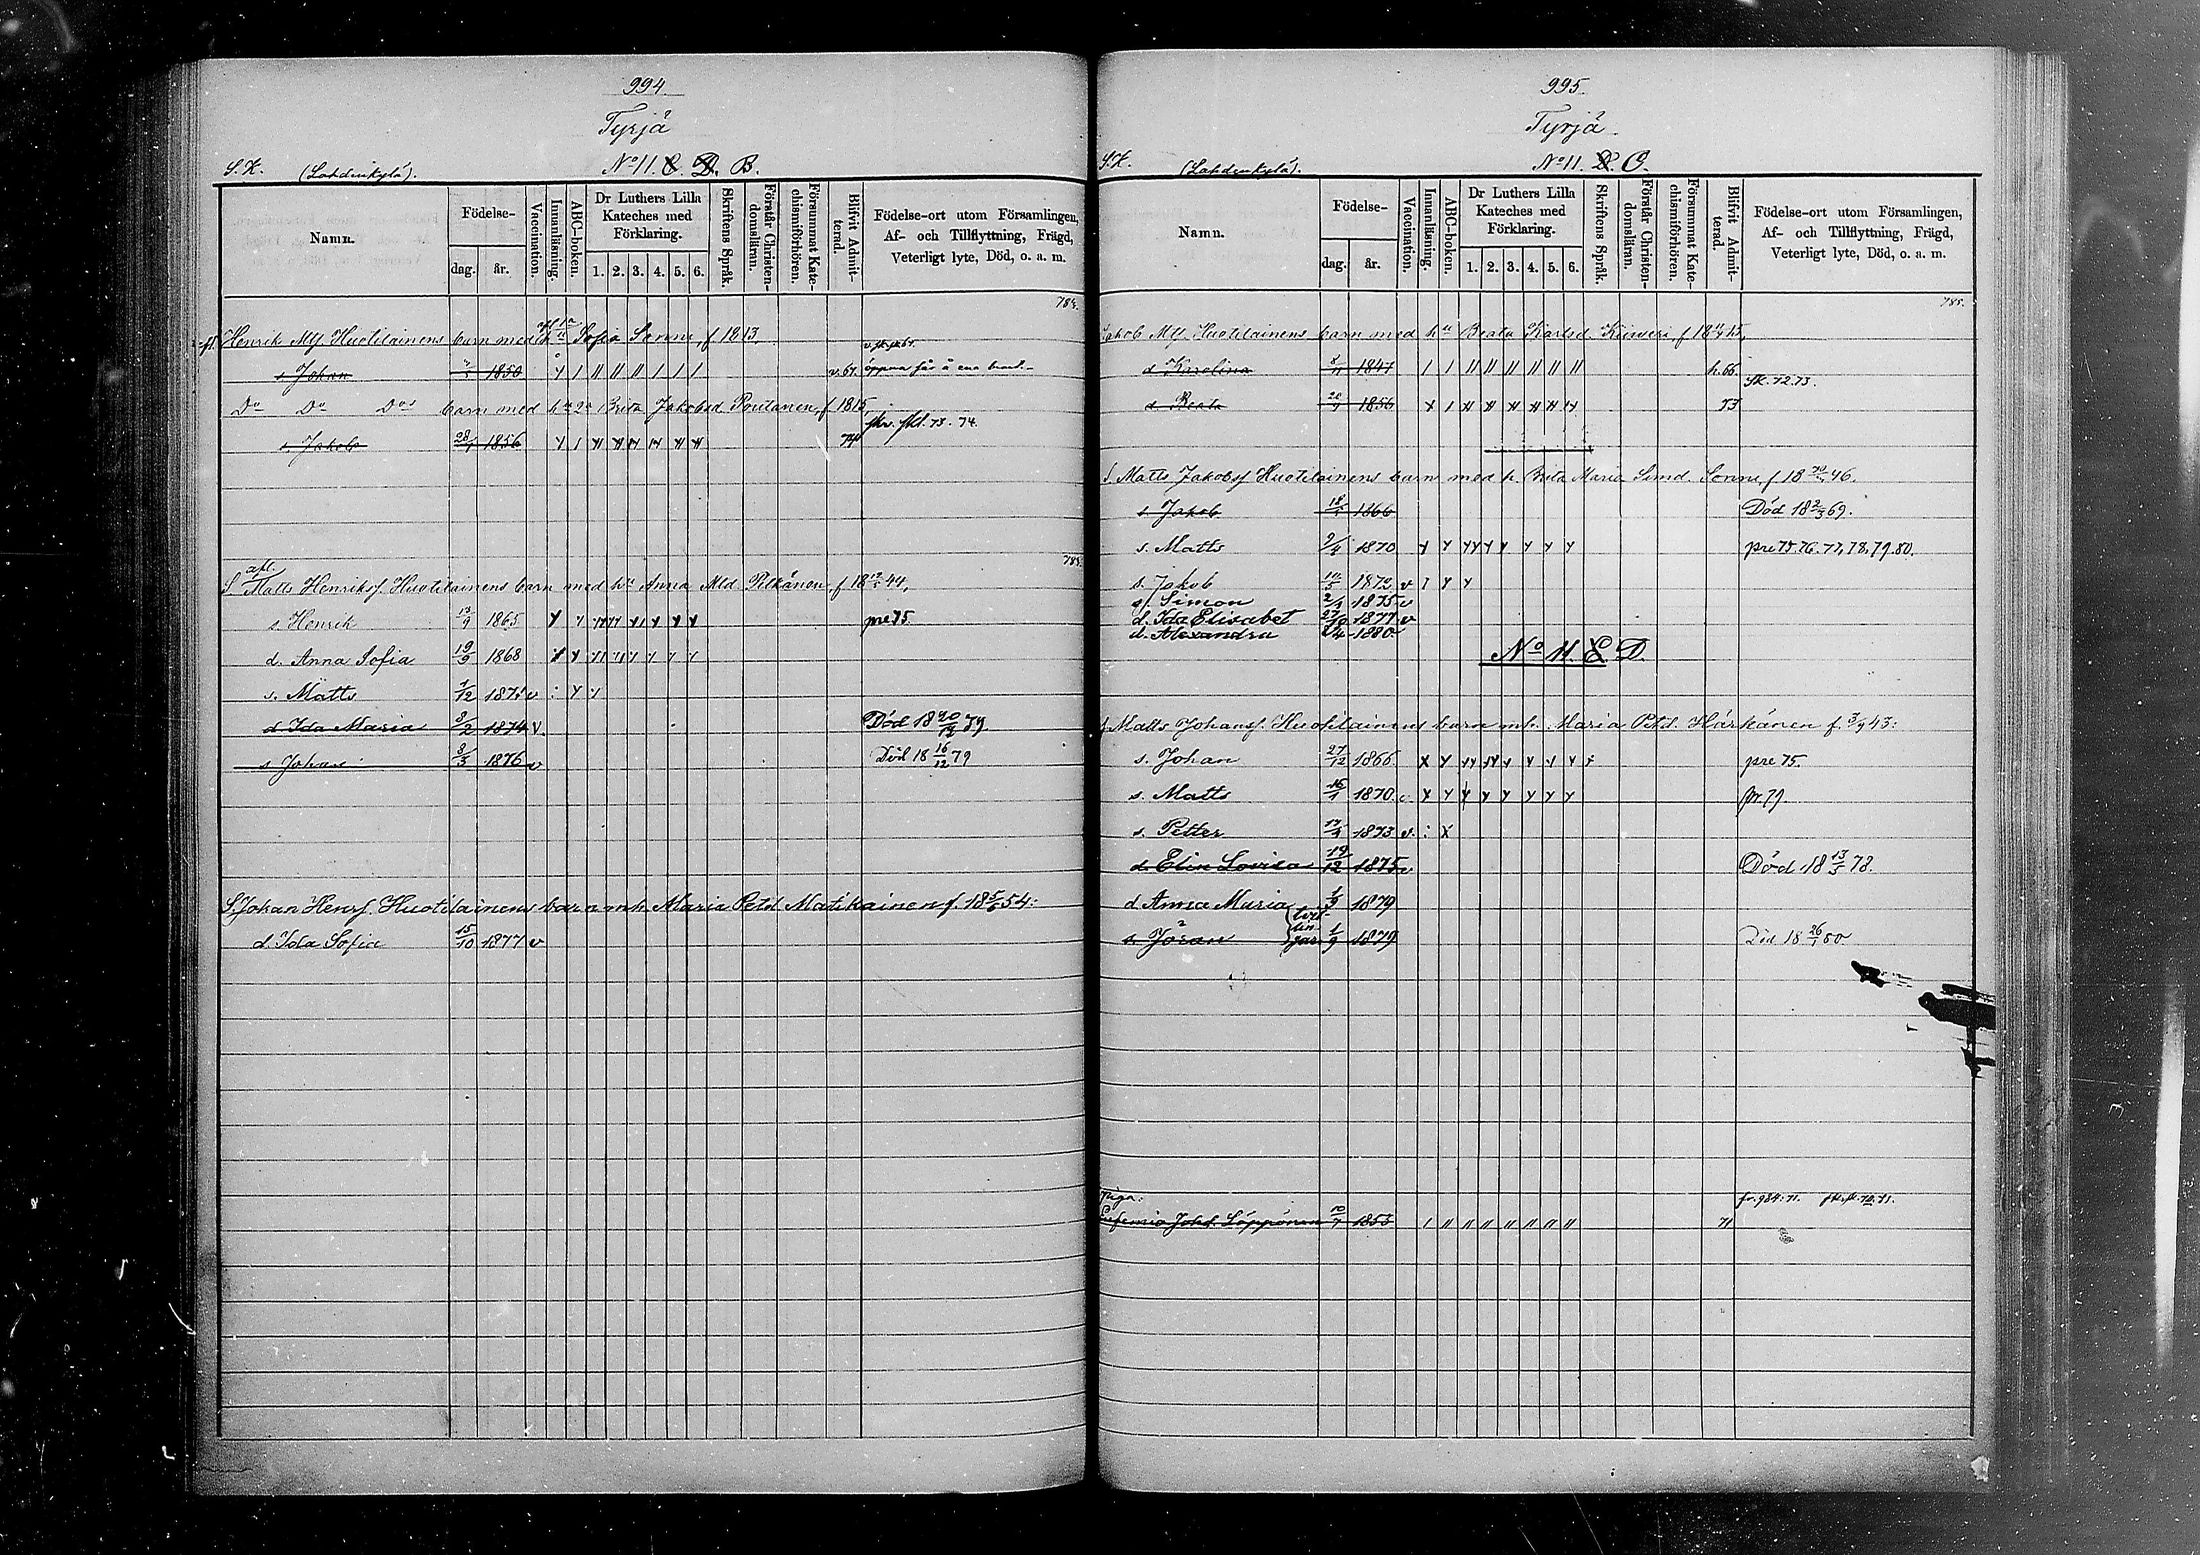 994
Tyrjä
S.K. (Lahdenkylä). No 11. C. D. B.
Namn.
Födelse-
dag. år.
Vaccination.
Innanläsning.
ABC-boken.
Dr Luthers Lilla Kateches med Förklaring.
1. 2. 3. 4. 5. 6.
Skriftens Språk.
Förstår Christendomsläran.
Försummat Katechismiförhören.
Blifvit Admitterad.
Födelse-ort utom Församlingen, Af- och Tillflyttning, Frägd, Veterligt lyte, Död, o. a. m.
784.
Henrik Mtss Huotilainens barn med Sofia Sonni, f 1813.
s. Johan 1850 v. 67.
Do Do Dos barn med hu 2a Brita Jakobsd. Poutanen, f 1815
s. Jakob 28/1 1856 74 73. 74.
784.
afl.
S Matts Henrikss. Huotilainens barn med hu Anna Mtd. Pitkänen, f 18 44,
s. Henrik 13/9 1865 pre 75.
d. Anna Sofia 19/9 1868
s. Matts 1/12 1871 v
d. Ida Maria 3/2 1874 v. Död 18 20/12 79.
s. Johan 3/3 1876 v Död 18 16/12 79
S. Johan Henrs. Huotilainens barn mh. Maria Petd Matikainen f. 18 54:
d. Ida Sofia 15/10 1877 v
995.
Tyrjä.
S.K. (Lahdenkylä). No 11. D. C.
Namn.
Födelse-
dag. år.
Vaccination.
Innanläsning.
ABC-boken.
Dr Luthers Lilla Kateches med Förklaring.
1. 2. 3. 4. 5. 6.
Skriftens Språk.
Förstår Christendomsläran.
Försummat Katechismiförhören.
Blifvit Admitterad.
Födelse-ort utom Församlingen, Af- och Tillflyttning, Frägd, Veterligt lyte, Död, o. a. m.
785.
Jakob Mtss. Huotilainens barn med hu Beata Karlsd. Kiiveri, f 18
d Karolina 1847 h. 66.
d. Beata 1856 73 72. 73.
S. Matts Jakobss Huotilainens barn med h. Brita Maria Simd. Sonni, f 18 46.
s. Jakob 18 1866 Död 18 2/3 69.
s. Matts 9/4 1870 pre 75. 76. 77, 78, 79. 80.
s. Jakob 1872 v
s. Simon 2/1 1875 v
d. Ida Elisabet 27/10 1877 v
d. Alexandra 1880
No 11. E D.
S. Matts Johanss. Huotilainens barn mh. Maria Petd. Härkönen f. 3/9 43:
s. Johan 27/12 1866 pre 75.
s. Matts 16/1 1870. pr. 79.
s. Petter 17/4 1873 v.
d. Elin Lovisa 19/12 1875 v Död 18 13/5 78.
d Anna Maria 1879
s. Jöran 1/9 1879 Död 18 26/1 80
tvillingar
Piga:
Eufemia Johd. Säppönen 10/7 1853 71 fr. 984: 71.